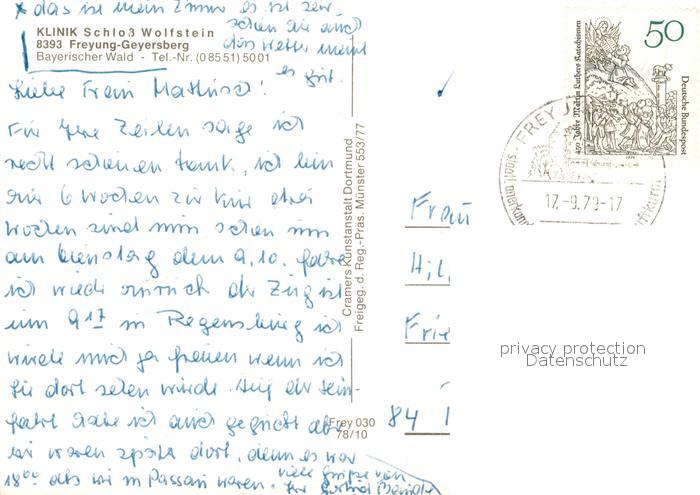 x das ist mein Zimmer es ist sehr
schön hier und
das Wetter meint
es gut.
KLINIK Schloß Wolfstein
8393 Freyung-Geyersberg
Bayerischer Wald - Tel.-Nr. (0 85 51) 50 01
Liebe Frau
Für Ihre Zeilen sage ich
recht schönen Dank, ich bin
für 6 Wochen zur Kur drei
Wochen sind nun schon um
am Dienstag dem 9.10. fahre
ich wieder zurück der Zug ist
um 9 17 in Regensburg ich
würde mich ja freuen wenn ich
Sie dort sehen würde. Auf der Hin-
fahrt habe ich auch geguckt aber
wir waren später dort, denn es war
18 00 als wir in Passau waren. viele Grüße von
Ihre
Cramers Kunstanstalt Dortmund
Freigeg. d. Reg.-Präs. Münster 553/77
Frey 030
78/10
450 Jahre Martin Luthers Katechismen
50
Deutsche Bundespost
FREY
17.-9.79-17
Frau
Hil
Frie
84
privacy protection
Datenschutz